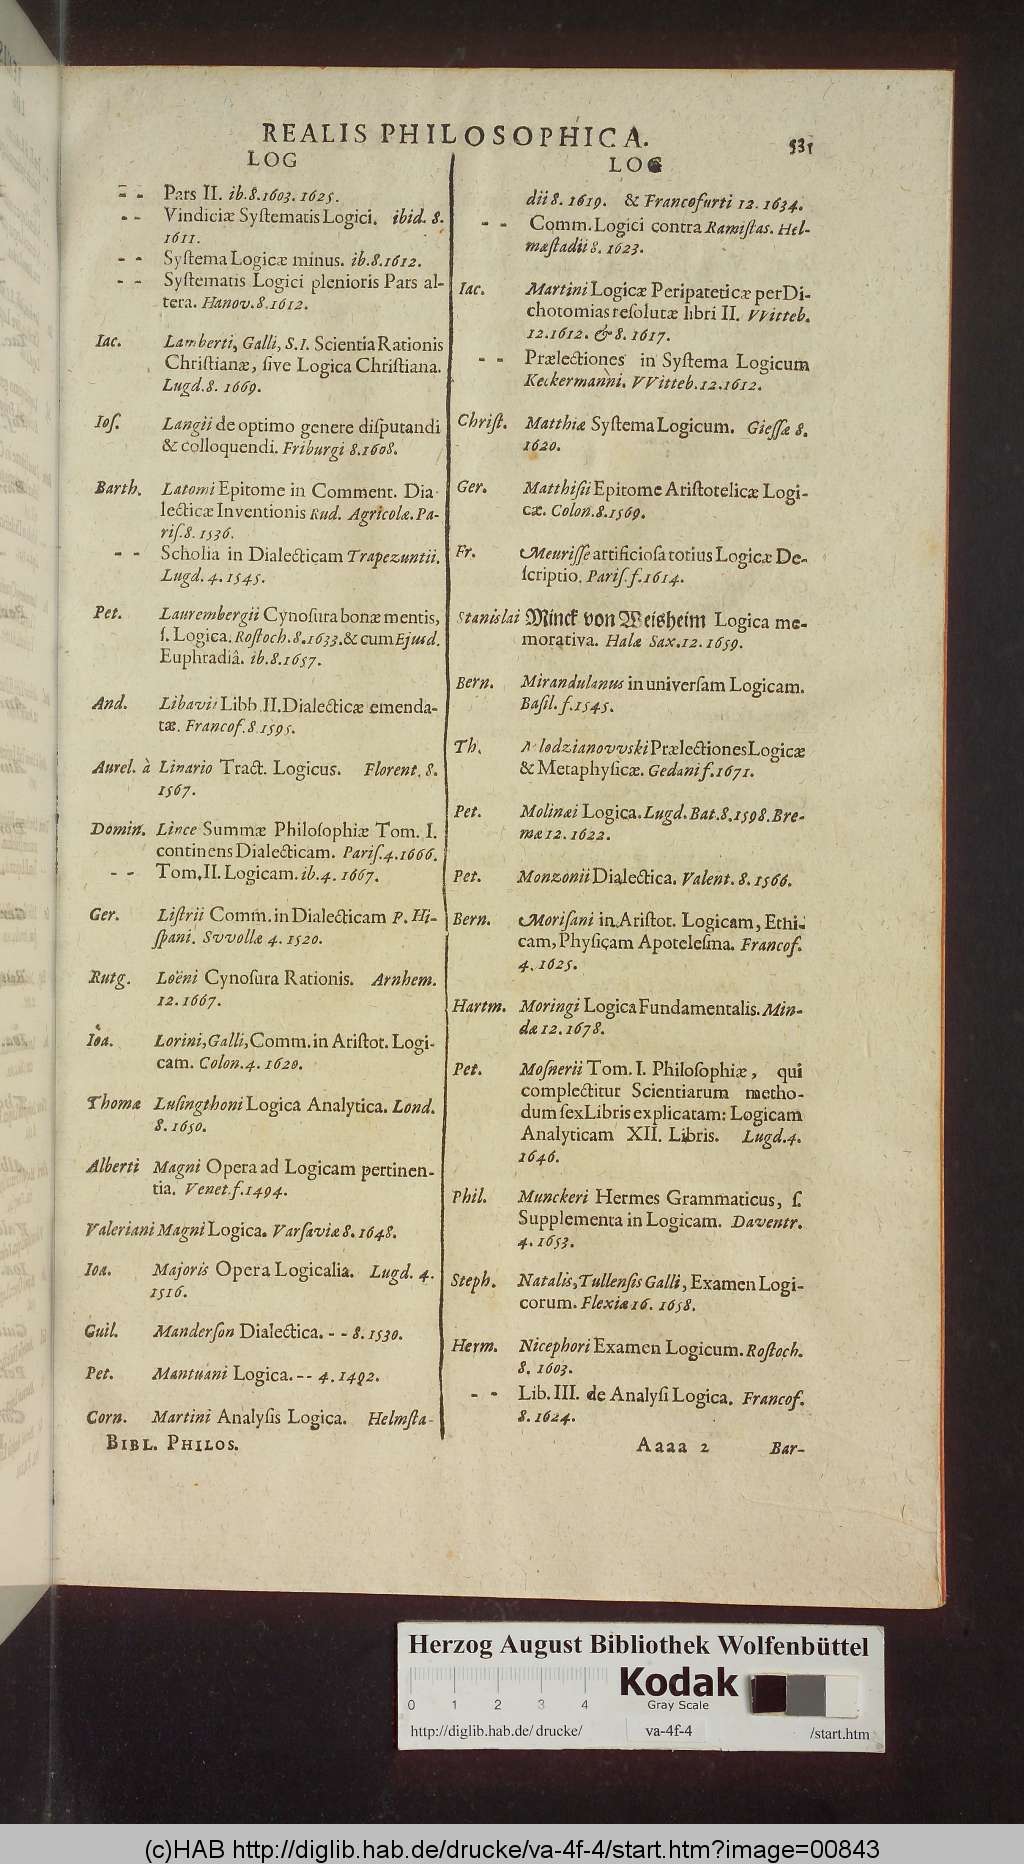 REALIS PHILOSOPHICA.
831
LOG
- - Pars II. ib. 8. 1603. 1625.
- - Vindiciæ Syſtematis Logici. ibid. 8.
1611.
- - Syſtema Logicæ minus. ib. 8. 1612.
- - Syſtematis Logici plenioris Pars al-
tera. Hanov. 8. 1612.
Iac. Lamberti, Galli, S. I. Scientia Rationis
Chriſtianæ, ſive Logica Chriſtiana.
Lugd. 8. 1669.
Ioſ. Langii de optimo genere diſputandi
& colloquendi. Friburgi 8. 1608.
Barth. Latomi Epitome in Comment. Dia
lecticæ Inventionis Rud. Agricolæ. Pa-
riſ. 8. 1536.
- - Scholia in Dialecticam Trapezuntii.
Lugd. 4. 1545.
Pet. Laurembergii Cynoſura bonæ mentis,
ſ. Logica. Roſtoch. 8. 1633. & cum Ejusd.
Euphradiâ. ib. 8. 1657.
And. Libavii Libb. II. Dialecticæ emenda-
tæ. Francof. 8. 1595.
Aurel. à Linario Tract. Logicus. Florent. 8.
1567.
Domin. Lince Summæ Philoſophiæ Tom. I.
continens Dialecticam. Pariſ. 4. 1666.
- - Tom. II. Logicam. ib. 4. 1667.
Ger. Liſtrii Comm. in Dialecticam P. Hi-
ſpani. Svvollæ 4. 1520.
Rutg. Loëni Cynoſura Rationis. Arnhem.
12. 1667.
Ioa. Lorini, Galli, Comm. in Ariſtot. Logi-
cam. Colon. 4. 1620.
Thomæ Luſingthoni Logica Analytica. Lond.
8. 1650.
Alberti Magni Opera ad Logicam pertinen-
tia. Venet. f. 1494.
Valeriani Magni Logica. Varſaviæ 8. 1648.
Ioa. Majoris Opera Logicalia. Lugd. 4.
1516.
Guil. Manderſon Dialectica. - - 8. 1530.
Pet. Mantuani Logica. - - 4. 1492.
Corn. Martini Analyſis Logica. Helmſta-
BIBL. PHILOS.
LOG
dii 8. 1619. & Francofurti 12. 1634.
- - Comm. Logici contra Ramiſtas. Hel-
mæſtadii 8. 1623.
Iac. Martini Logicæ Peripateticæ per Di-
chotomias reſolutæ libri II. VVitteb.
12. 1612. & 8. 1617.
- - Prælectiones in Syſtema Logicum
Keckermanni. VVitteb. 12. 1612.
Chriſt. Matthiæ Syſtema Logicum. Gieſſæ 8.
1620.
Ger. Matthiſii Epitome Ariſtotelicæ Logi-
cæ. Colon. 8. 1569.
Fr. Meuriſſe artificioſa totius Logicæ De-
ſcriptio. Pariſ. f. 1614.
Stanislai Minck von Weisheim Logica me-
morativa. Halæ Sax. 12. 1659.
Bern. Mirandulanus in univerſam Logicam.
Baſil. f. 1545.
Th. Mlodzianovvski Prælectiones Logicæ
& Metaphyſicæ. Gedani f. 1671.
Pet. Molinæi Logica. Lugd. Bat. 8. 1598. Bre-
mæ 12. 1622.
Pet. Monzonii Dialectica. Valent. 8. 1566.
Bern. Moriſani in Ariſtot. Logicam, Ethi-
cam, Phyſicam Apoteleſma. Francof.
4. 1625.
Hartm. Moringi Logica Fundamentalis. Min-
dæ 12. 1678.
Pet. Moſnerii Tom. I. Philoſophiæ, qui
complectitur Scientiarum metho-
dum ſex Libris explicatam: Logicam
Analyticam XII. Libris. Lugd. 4.
1646.
Phil. Munckeri Hermes Grammaticus, ſ.
Supplementa in Logicam. Daventr.
4. 1653.
Steph. Natalis, Tullenſis Galli, Examen Logi-
corum. Flexiæ 16. 1658.
Herm. Nicephori Examen Logicum. Roſtoch.
8. 1603.
- - Lib. III. de Analyſi Logica. Francof.
8. 1624.
Aaaa 2
Bar-
Herzog August Bibliothek Wolfenbüttel
0 1 2 3 4
Kodak
Gray Scale
http://diglib.hab.de/ drucke/ va-4f-4 /start.htm
(c)HAB http://diglib.hab.de/drucke/va-4f-4/start.htm?image=00843